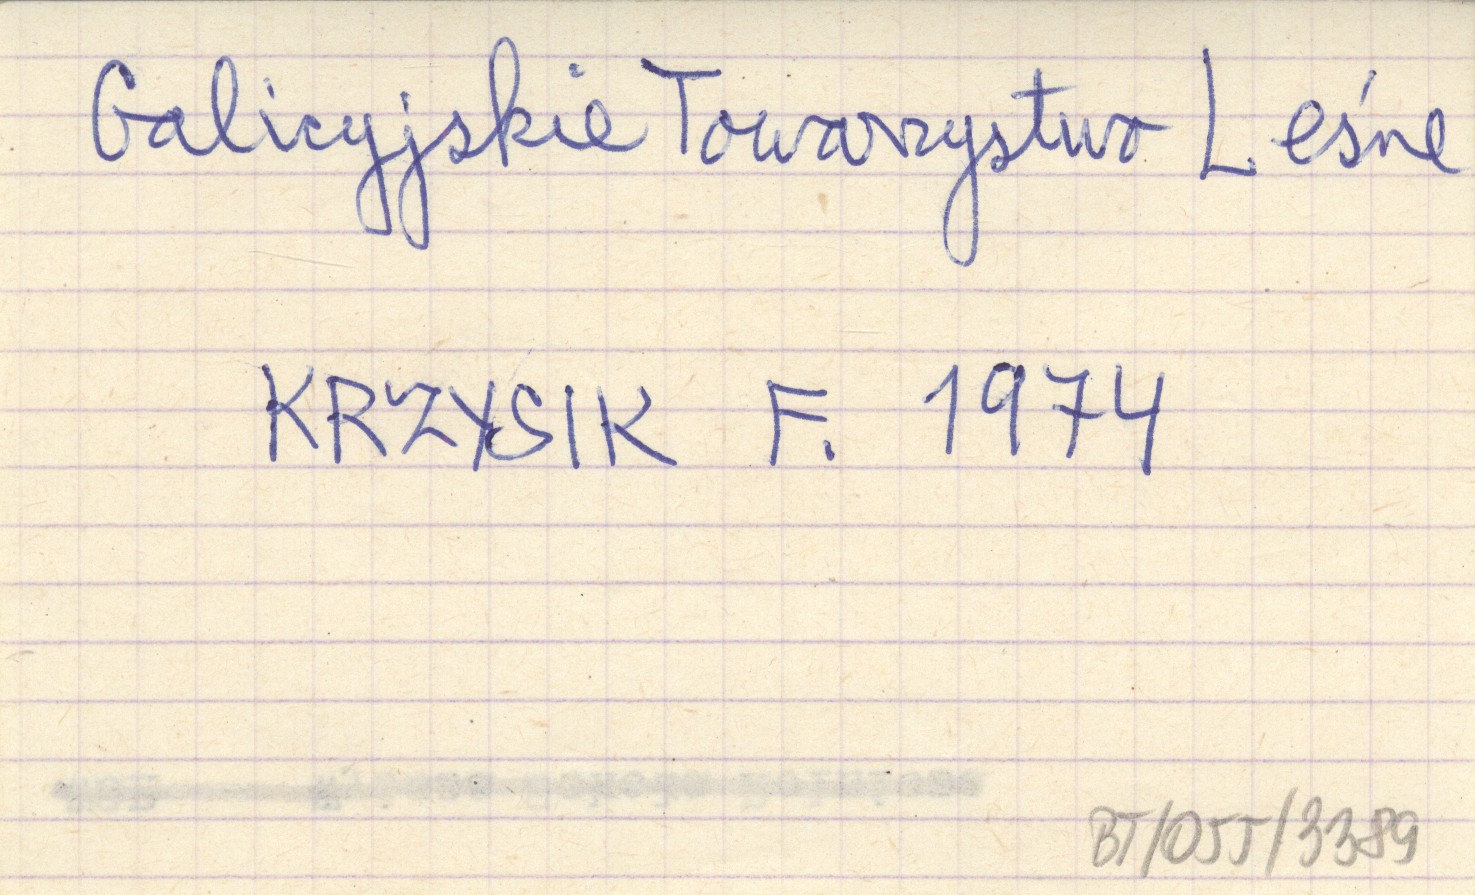 Galicyjskie Towarzystwo Leśne
KRZYSIK F. 1974
BT/055/3389